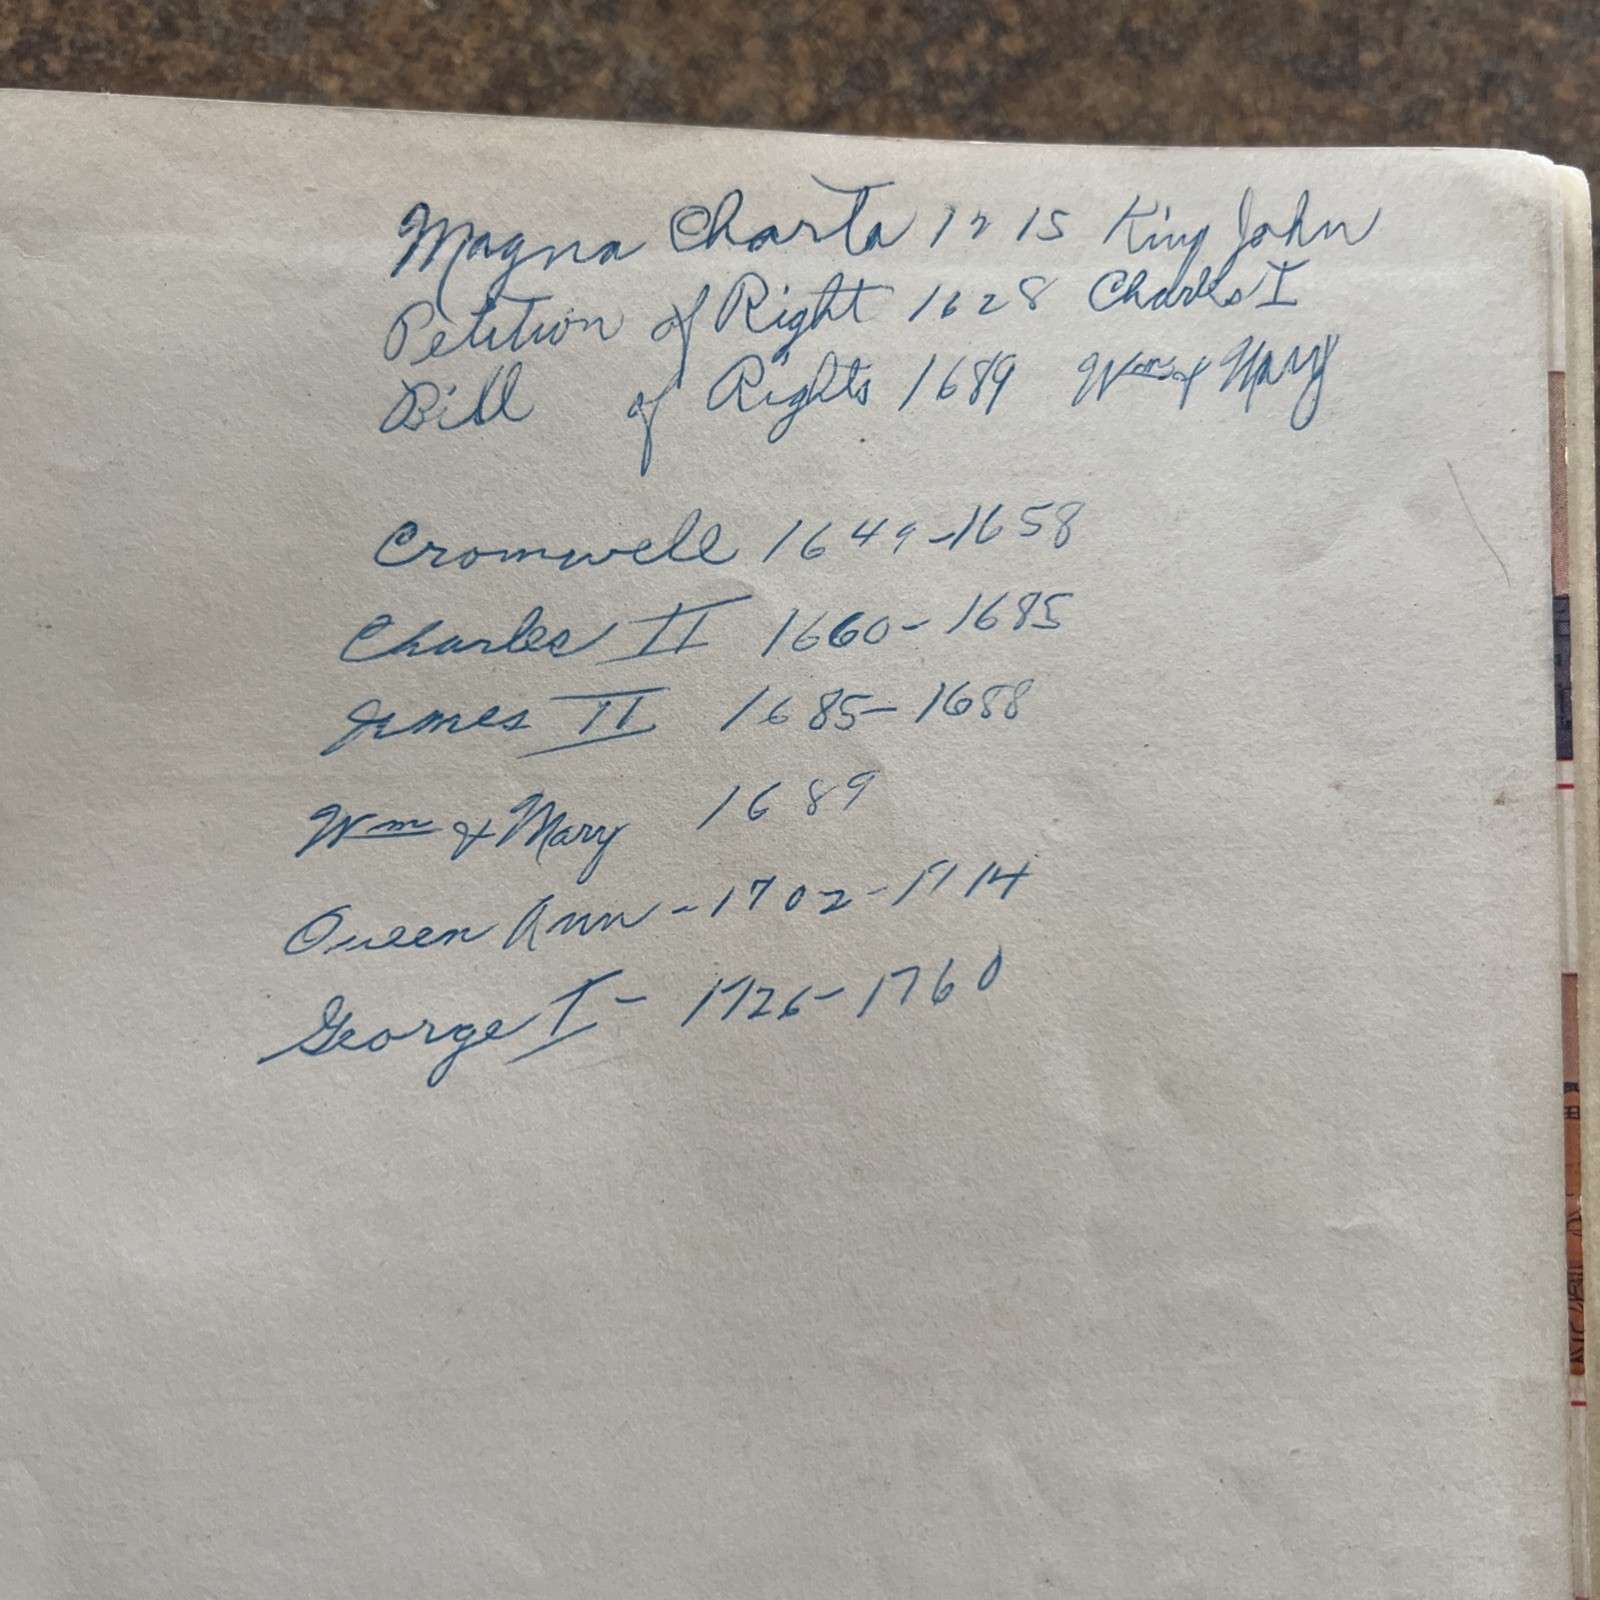 Magna Charta 1215 King John
Petition of Right 1628 Charles I
Bill of Rights 1689 Wm & Mary
Cromwell 1649-1658
Charles II 1660-1685
James II 1685-1688
Wm & Mary 1689
Queen Ann - 1702-1714
George I - 1726-1760